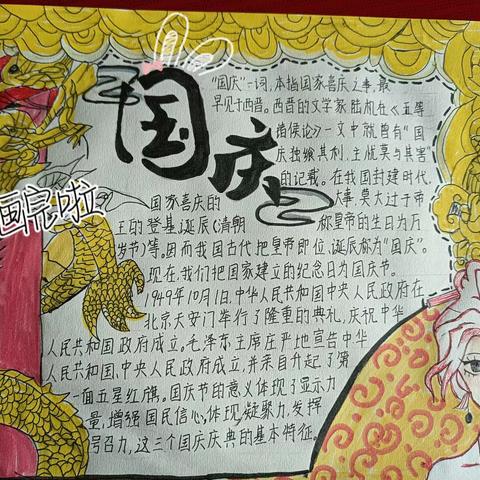 国庆
画完啦
"国庆"一词,本指国家喜庆之事,最
早见于西晋。西晋的文学家陆机在《五等
诸侯论》一文中就曾有"国
庆独飨其利,主忧莫与其害"
的记载。在我国封建时代,
国家喜庆的大事,莫大过于帝
王的登基、诞辰(清朝称皇帝的生日为万
岁节)等。因而我国古代把皇帝即位、诞辰称为"国庆"。
现在,我们把国家建立的纪念日为国庆节。
1949年10月1日,中华人民共和国中央人民政府在
北京天安门举行了隆重的典礼,庆祝中华
人民共和国政府成立,毛泽东主席庄严地宣告中华
人民共和国,中央人民政府成立,并亲自升起了第
一面五星红旗。国庆节的意义体现了显示力
量,增强国民信心,体现凝聚力,发挥
号召力,这三个国庆庆典的基本特征。